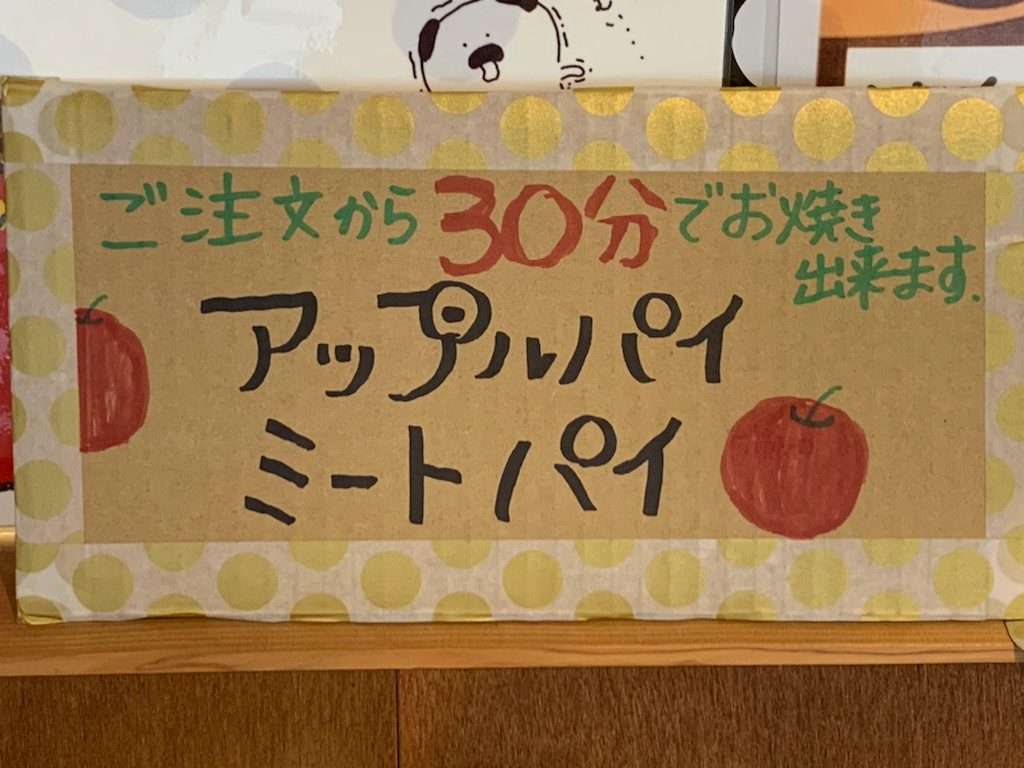 ご注文から30分でお焼き
出来ます.
アップルパイ
ミートパイ